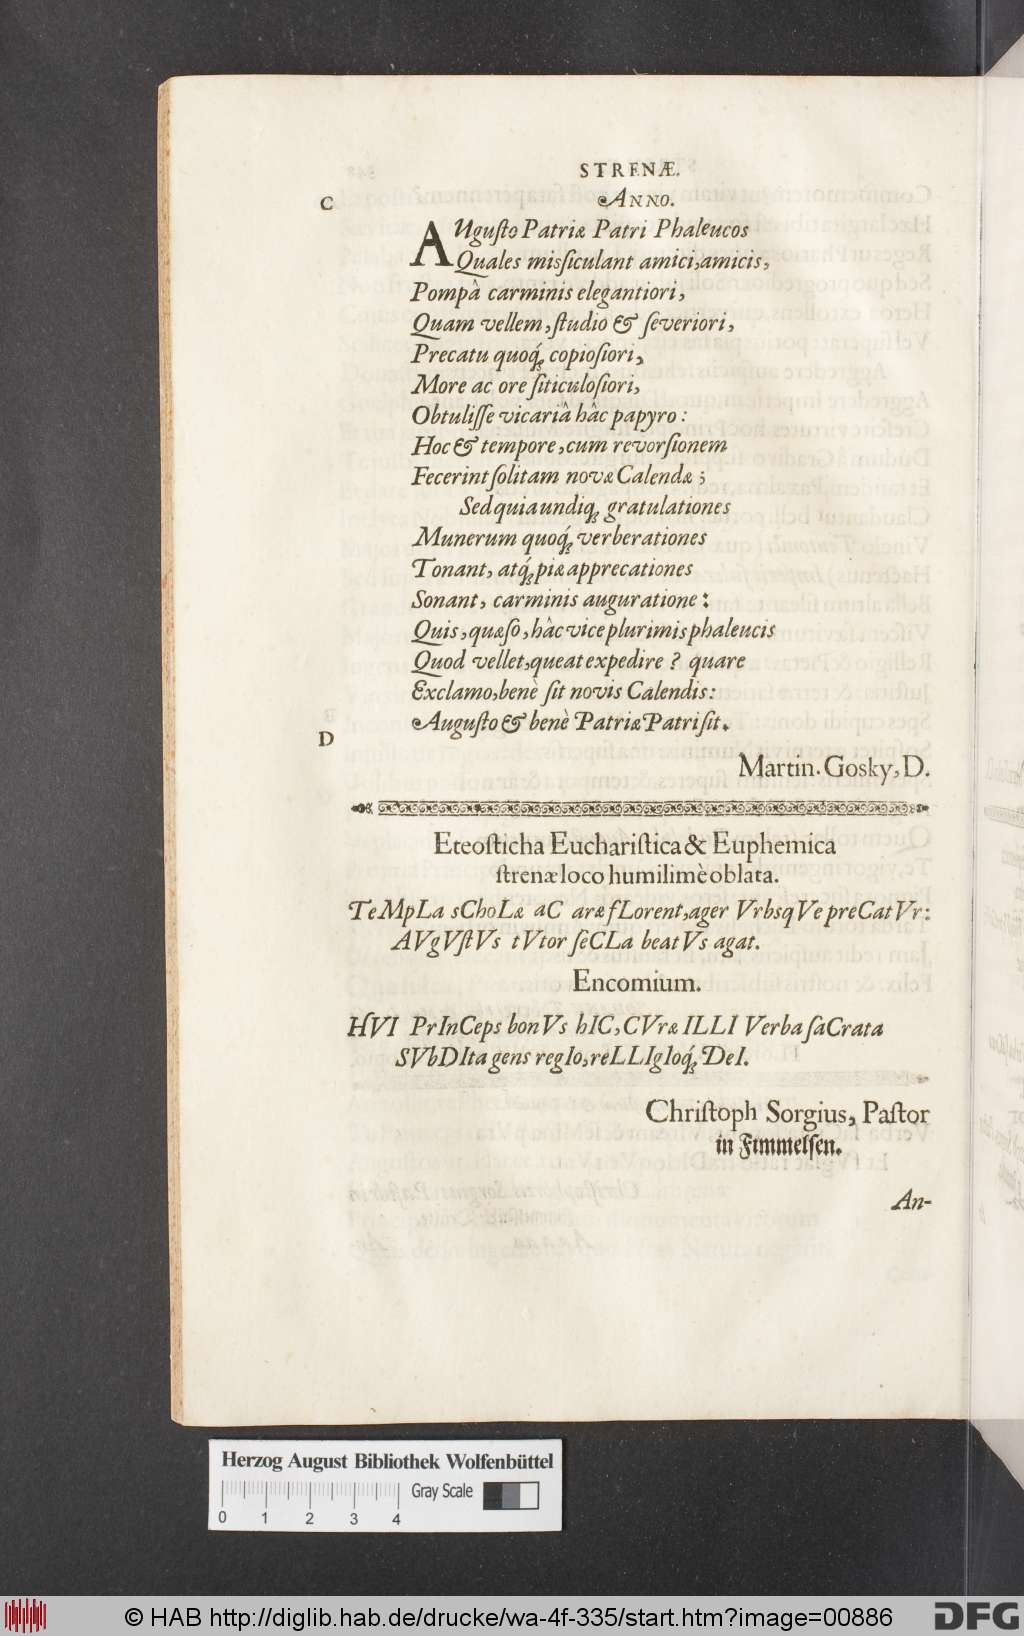 STRENÆ.
C
ANNO.
AUguſto Patriæ Patri Phaleucos
Quales misſiculant amici, amicis,
Pompâ carminis elegantiori,
Quam vellem, ſtudio & ſeveriori,
Precatu quoq́ꝫ copioſiori,
More ac ore ſiticuloſiori,
Obtuliſſe vicariâ hâc papyro:
Hoc & tempore, cum revorſionem
Fecerint ſolitam novæ Calendæ;
Sed quia undiqꝫ gratulationes
Munerum quoq́ꝫ verberationes
Tonant, atq́ꝫ piæ apprecationes
Sonant, carminis auguratione:
Quis, quæſo, hâc vice plurimis phaleucis
Quod vellet, queat expedire? quare
Exclamo, benè ſit novis Calendis:
Auguſto & benè Patriæ Patri ſit.
D
Martin. Gosky, D.
Eteoſticha Euchariſtica & Euphemica
ſtrenæ loco humilimè oblata.
TeMpLa sChoLæ aC aræ fLorent, ager VrbsqVe preCatVr:
AVgVſtVs tVtor ſeCLa beatVs agat.
Encomium.
HVI PrInCeps bonVs hIC, CVræ ILLI Verba ſaCrata
SVbDIta gens regIo, reLLIgIoq́ꝫ DeI.
Chriſtoph Sorgius, Paſtor
in Fimmelſen.
An-
Herzog August Bibliothek Wolfenbüttel
Gray Scale
0 1 2 3 4
© HAB http://diglib.hab.de/drucke/wa-4f-335/start.htm?image=00886
DFG